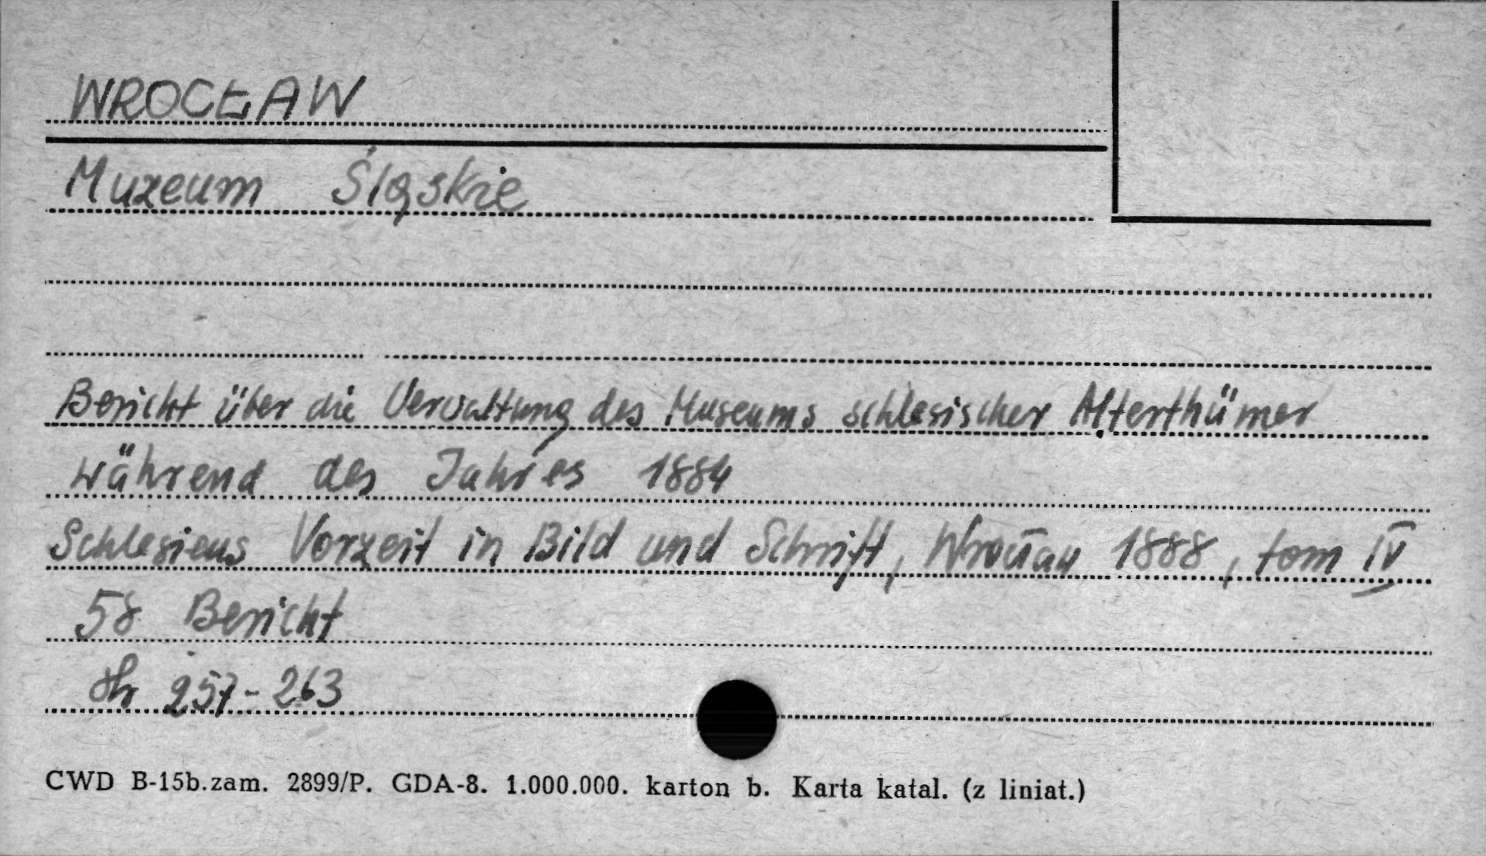 WROCŁAW
Muzeum Śląskie
Bericht über die Verwaltung des Museums schlesischer Alterthümer
während des Jahres 1884
Schlesiens Vorzeit in Bild und Schrift, Wrocław 1888, tom IV
58 Bericht
str 257-263
CWD B-15b.zam. 2899/P. GDA-8. 1.000.000. karton b. Karta katal. (z liniat.)